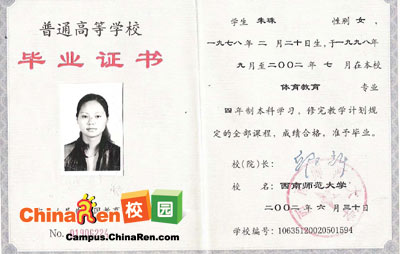 普通高等学校
毕业证书
ChinaRen校园
No. 01906224
Campus.ChinaRen.com
学生 朱珠 性别 女、
一九七八年 二 月 二十日生，于一九九八年
九 月至二〇〇二年 七 月在本校
体育教育 专业
四年制本科学习，修完教学计划规
定的全部课程，成绩合格，准予毕业。
校(院)长：
校 名：西南师范大学
二〇〇二年 六 月三十日
学校编号：10635120020501594